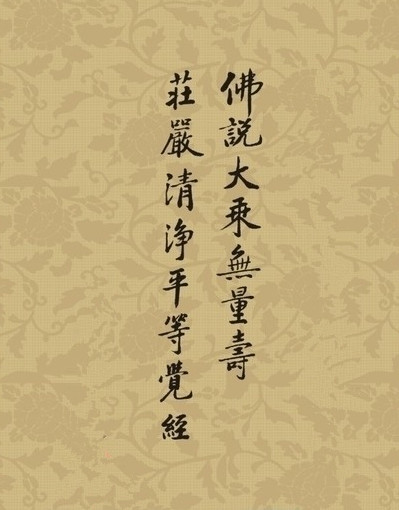 佛説大乘無量壽
莊嚴清淨平等覺經